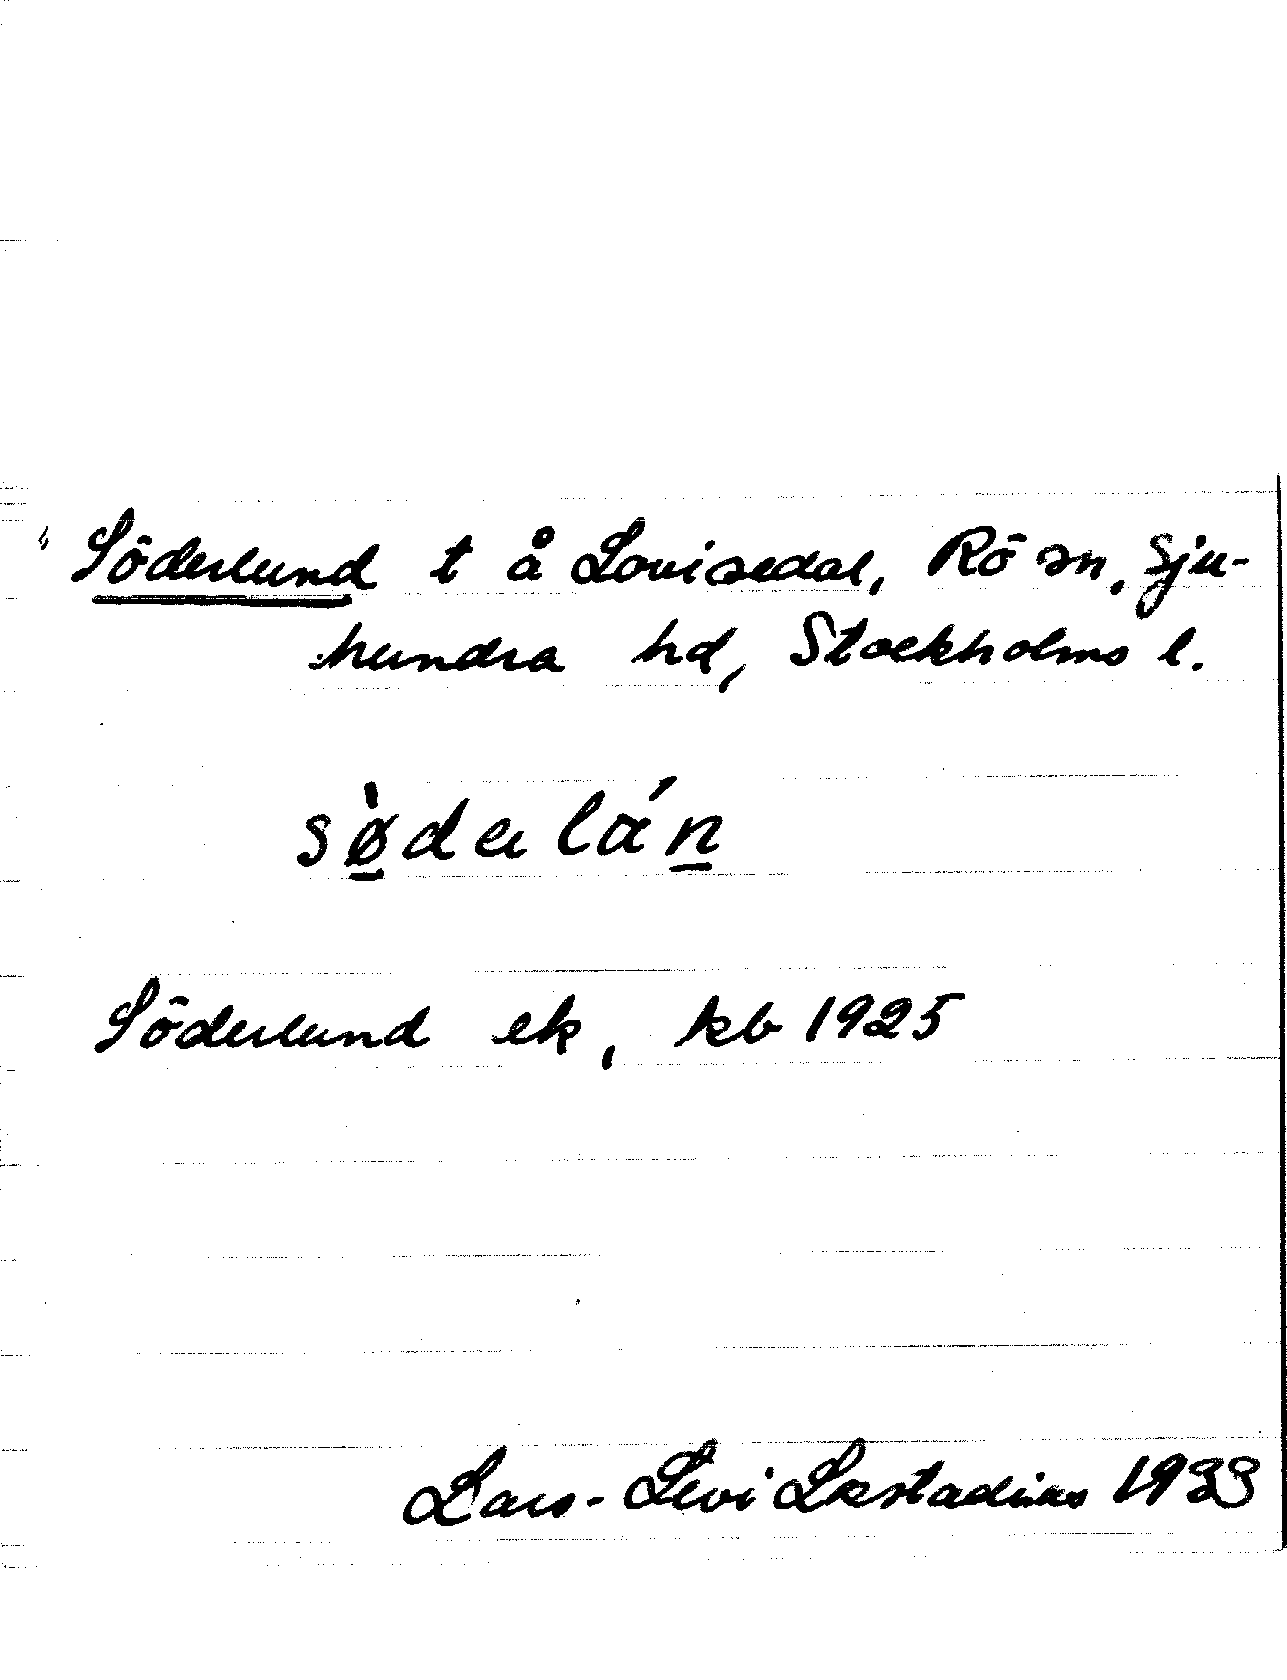 Söderlund t å Lovisedal, Rö sn, Sju-
hundra hd, Stockholms l.
sø̀dɐlán
Söderlund ek, kb 1925
Lars-Levi Læstadius 1933